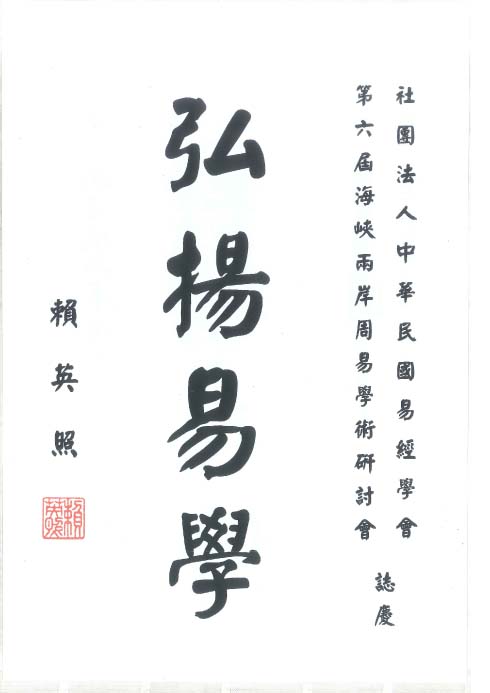 社團法人中華民國易經學會
第六屆海峽兩岸周易學術研討會
誌慶
弘揚易學
賴英照